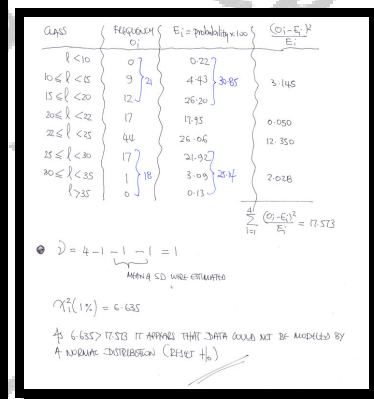 CLASS FREQUENCY Oi Ei = probability×100 (Oi-Ei)²/Ei
l < 10 0 0.22
10≤l<15 9 21 4.43 30.85 3.145
15≤l<20 12 26.20
20≤l<22 17 17.95 0.050
22≤l<25 44 26.06 12.350
25≤l<30 17 18 21.92 25.14 2.028
30≤l<35 1 3.09
l>35 0 0.13
4 Σ i=1 (Oi-Ei)²/Ei = 17.573
ν = 4-1-1-1 = 1
MEAN & SD WERE ESTIMATED
χ²₁(1%) = 6.635
As 6.635> 17.573 IT APPEARS THAT DATA COULD NOT BE MODELED BY
A NORMAL DISTRIBUTION (REJECT H₀)